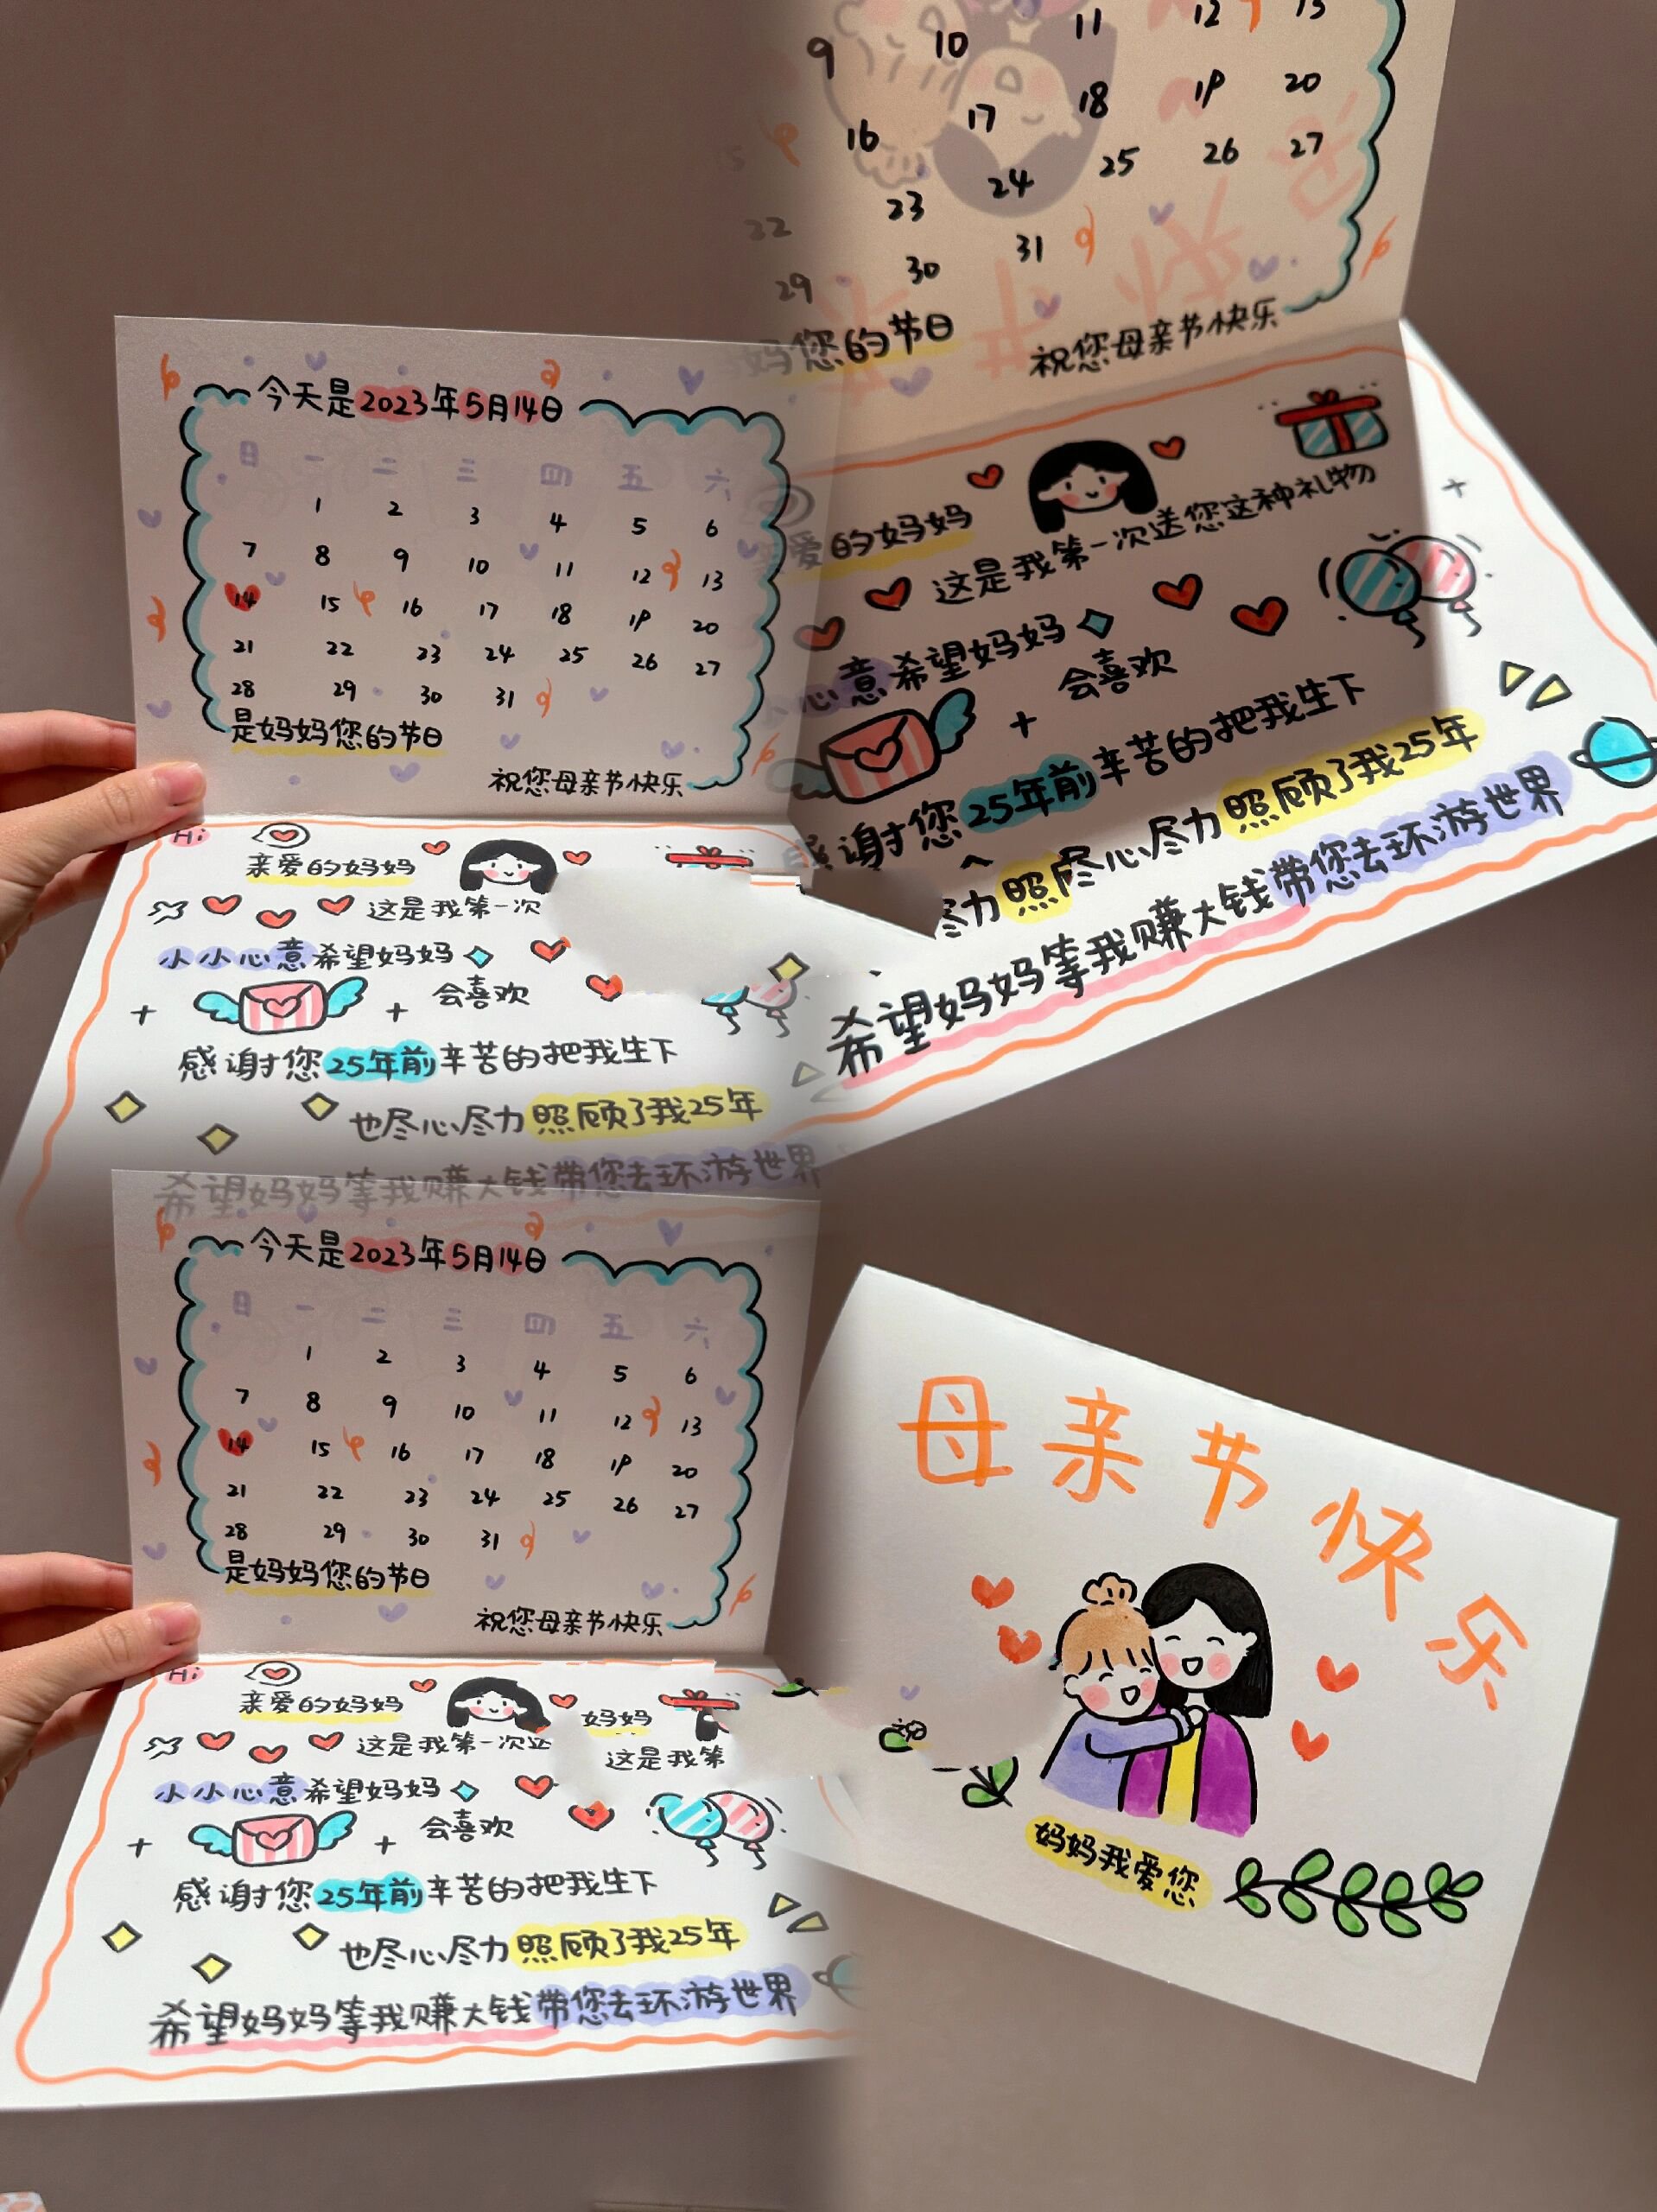 今天是2023年5月14日
日 一 二 三 四 五 六
1 2 3 4 5 6
7 8 9 10 11 12 13
14 15 16 17 18 19 20
21 22 23 24 25 26 27
28 29 30 31
是妈妈您的节日
祝您母亲节快乐
Hi
亲爱的妈妈
这是我第一次
小小心意希望妈妈
会喜欢
感谢您25年前辛苦的把我生下
也尽心尽力照顾了我25年
希望妈妈等我赚大钱带您去环游世界
9 10 11 12 13
16 17 18 19 20
22 23 24 25 26 27
29 30 31
妈您的节日
祝您母亲节快乐
爱的妈妈
这是我第一次送您这种礼物
心意希望妈妈
会喜欢
感谢您25年前辛苦的把我生下
尽心尽力照顾了我25年
尽力照
希望妈妈等我赚大钱带您去环游世界
今天是2023年5月14日
日 一 二 三 四 五 六
1 2 3 4 5 6
7 8 9 10 11 12 13
14 15 16 17 18 19 20
21 22 23 24 25 26 27
28 29 30 31
是妈妈您的节日
祝您母亲节快乐
Hi
亲爱的妈妈
妈妈
这是我第一次
这是我第
小小心意希望妈妈
会喜欢
感谢您25年前辛苦的把我生下
也尽心尽力照顾了我25年
希望妈妈等我赚大钱带您去环游世界
母亲节快乐
妈妈我爱您